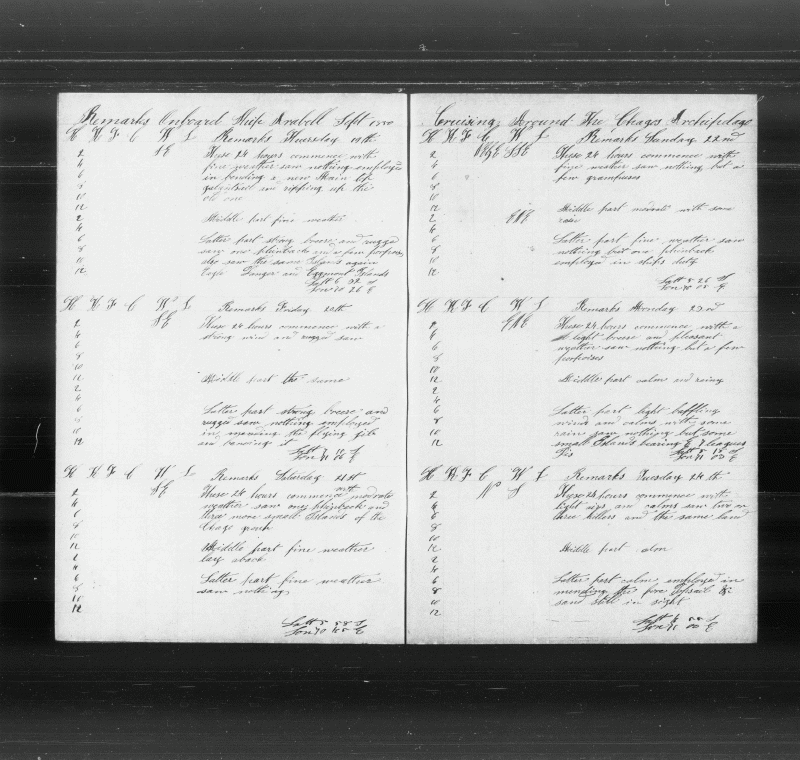 Remarks Onboard Ship Arabell Sept
H K F C W L Remarks Thursday 19th
2 SE These 24 hours commence with
4 fine weather saw nothing employed
6 in bending a new Main
8 in ripping up the
10 old one
12
2 Middle part fine weather
4
6 Latter part strong breeze and rugged
8 saw one finback and a few porpoises
10 also saw the same Islands again
12 Eagle Danger and Eggmont Islands
Latt 6 32 S
Lon 70 26 E
H K F C W L Remarks Friday 20th
2 SE These 24 hours commence with a
4 strong wind and rugged saw
6
8
10
12 Middle part the same
2
4
6 Latter part strong breeze and
8 rugged saw nothing employed
10 in mending the flying jib
12 and bending it
Latt
Lon
H K F C W L Remarks Saturday 21st
2 SE These 24 hours commence with moderate
4 weather saw one finback and
6 three more small Islands of the
8 Chago group
10
12 Middle part fine weather
2 lay aback
4
6 Latter part fine weather
8 saw nothing
10
12
Latt 5 58 S
Lon 70 E
Cruising Around The Chagos Archeipelago
H K F C W L Remarks Sunday 22nd
2 SSE These 24 hours commence with
4 fine weather saw nothing but a
6 few grampuses
8
10
12 Middle part moderate with some
2 ENE rain
4
6 Latter part fine weather saw
8 nothing but one finback
10 employed in ships duty
12
Latt 5 26 S
Lon 70 E
H K F C W L Remarks Monday 23rd
2 ENE These 24 hours commence with a
4 light breeze and pleasant
6 weather saw nothing but a few
8 porpoises
10
12 Middle part calm and rainy
2
4
6 Latter part light baffling
8 wind and calms with some
10 rain saw nothing but some
12 small Islands bearing E 8 leagues
Latt
Lon 71 E
H K F C W L Remarks Tuesday 24th
2 W S These 24 hours commence with
4 light airs and calms saw two or
6 three killers and the same land
8
10
12 Middle part calm
2
4
6 Latter part calm employed in
8 mending the fore topsail &c
10 land still in sight
12
Latt
Lon 71 00 E